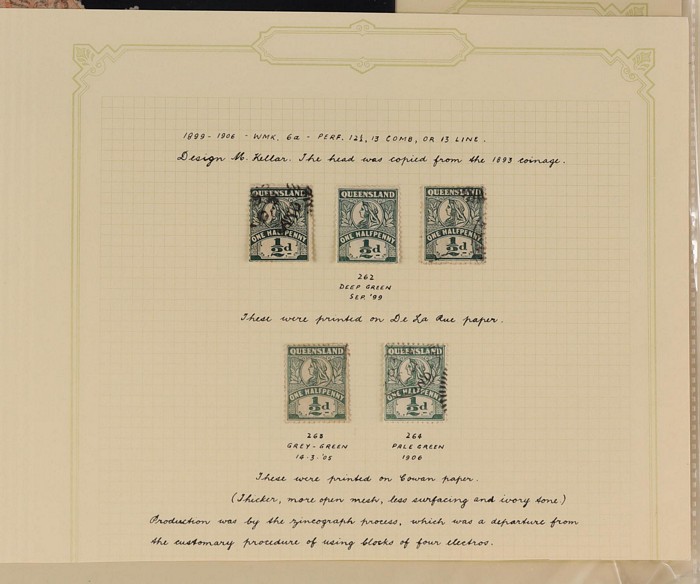 1899 - 1906 - WMK. 6a - PERF. 12½, 13 COMB, OR 13 LINE.
Design M. Kellar. The head was copied from the 1893 coinage.
QUEENSLAND QUEENSLAND QUEENSLAND
ONE HALFPENNY ONE HALFPENNY ONE HALFPENNY
½d ½d ½d
262
DEEP GREEN
SEP. '99
These were printed on De La Rue paper.
QUEENSLAND QUEENSLAND
ONE HALFPENNY ONE HALFPENNY
½d ½d
263 264
GREY-GREEN PALE GREEN
14-3-'05 1906
These were printed on Cowan paper.
(Thicker, more open mesh, less surfacing and ivory tone)
Production was by the zincograph process, which was a departure from
the customary procedure of using blocks of four electros.